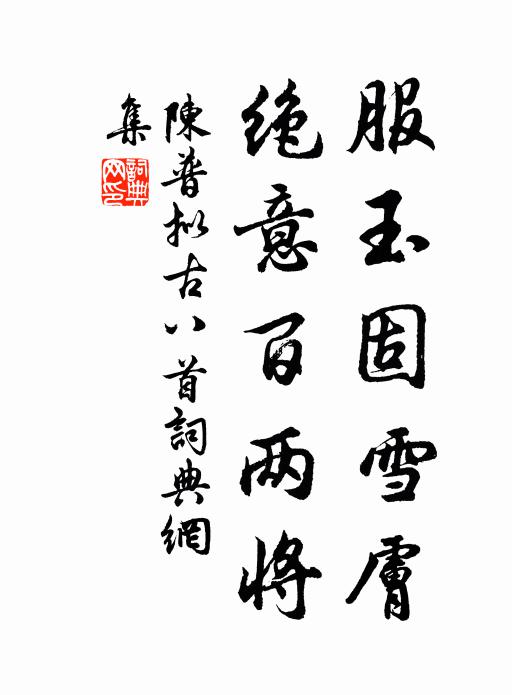 服玉固雪膚
绝意百两將
陳普拟古八首詞典網
集
詞典网印